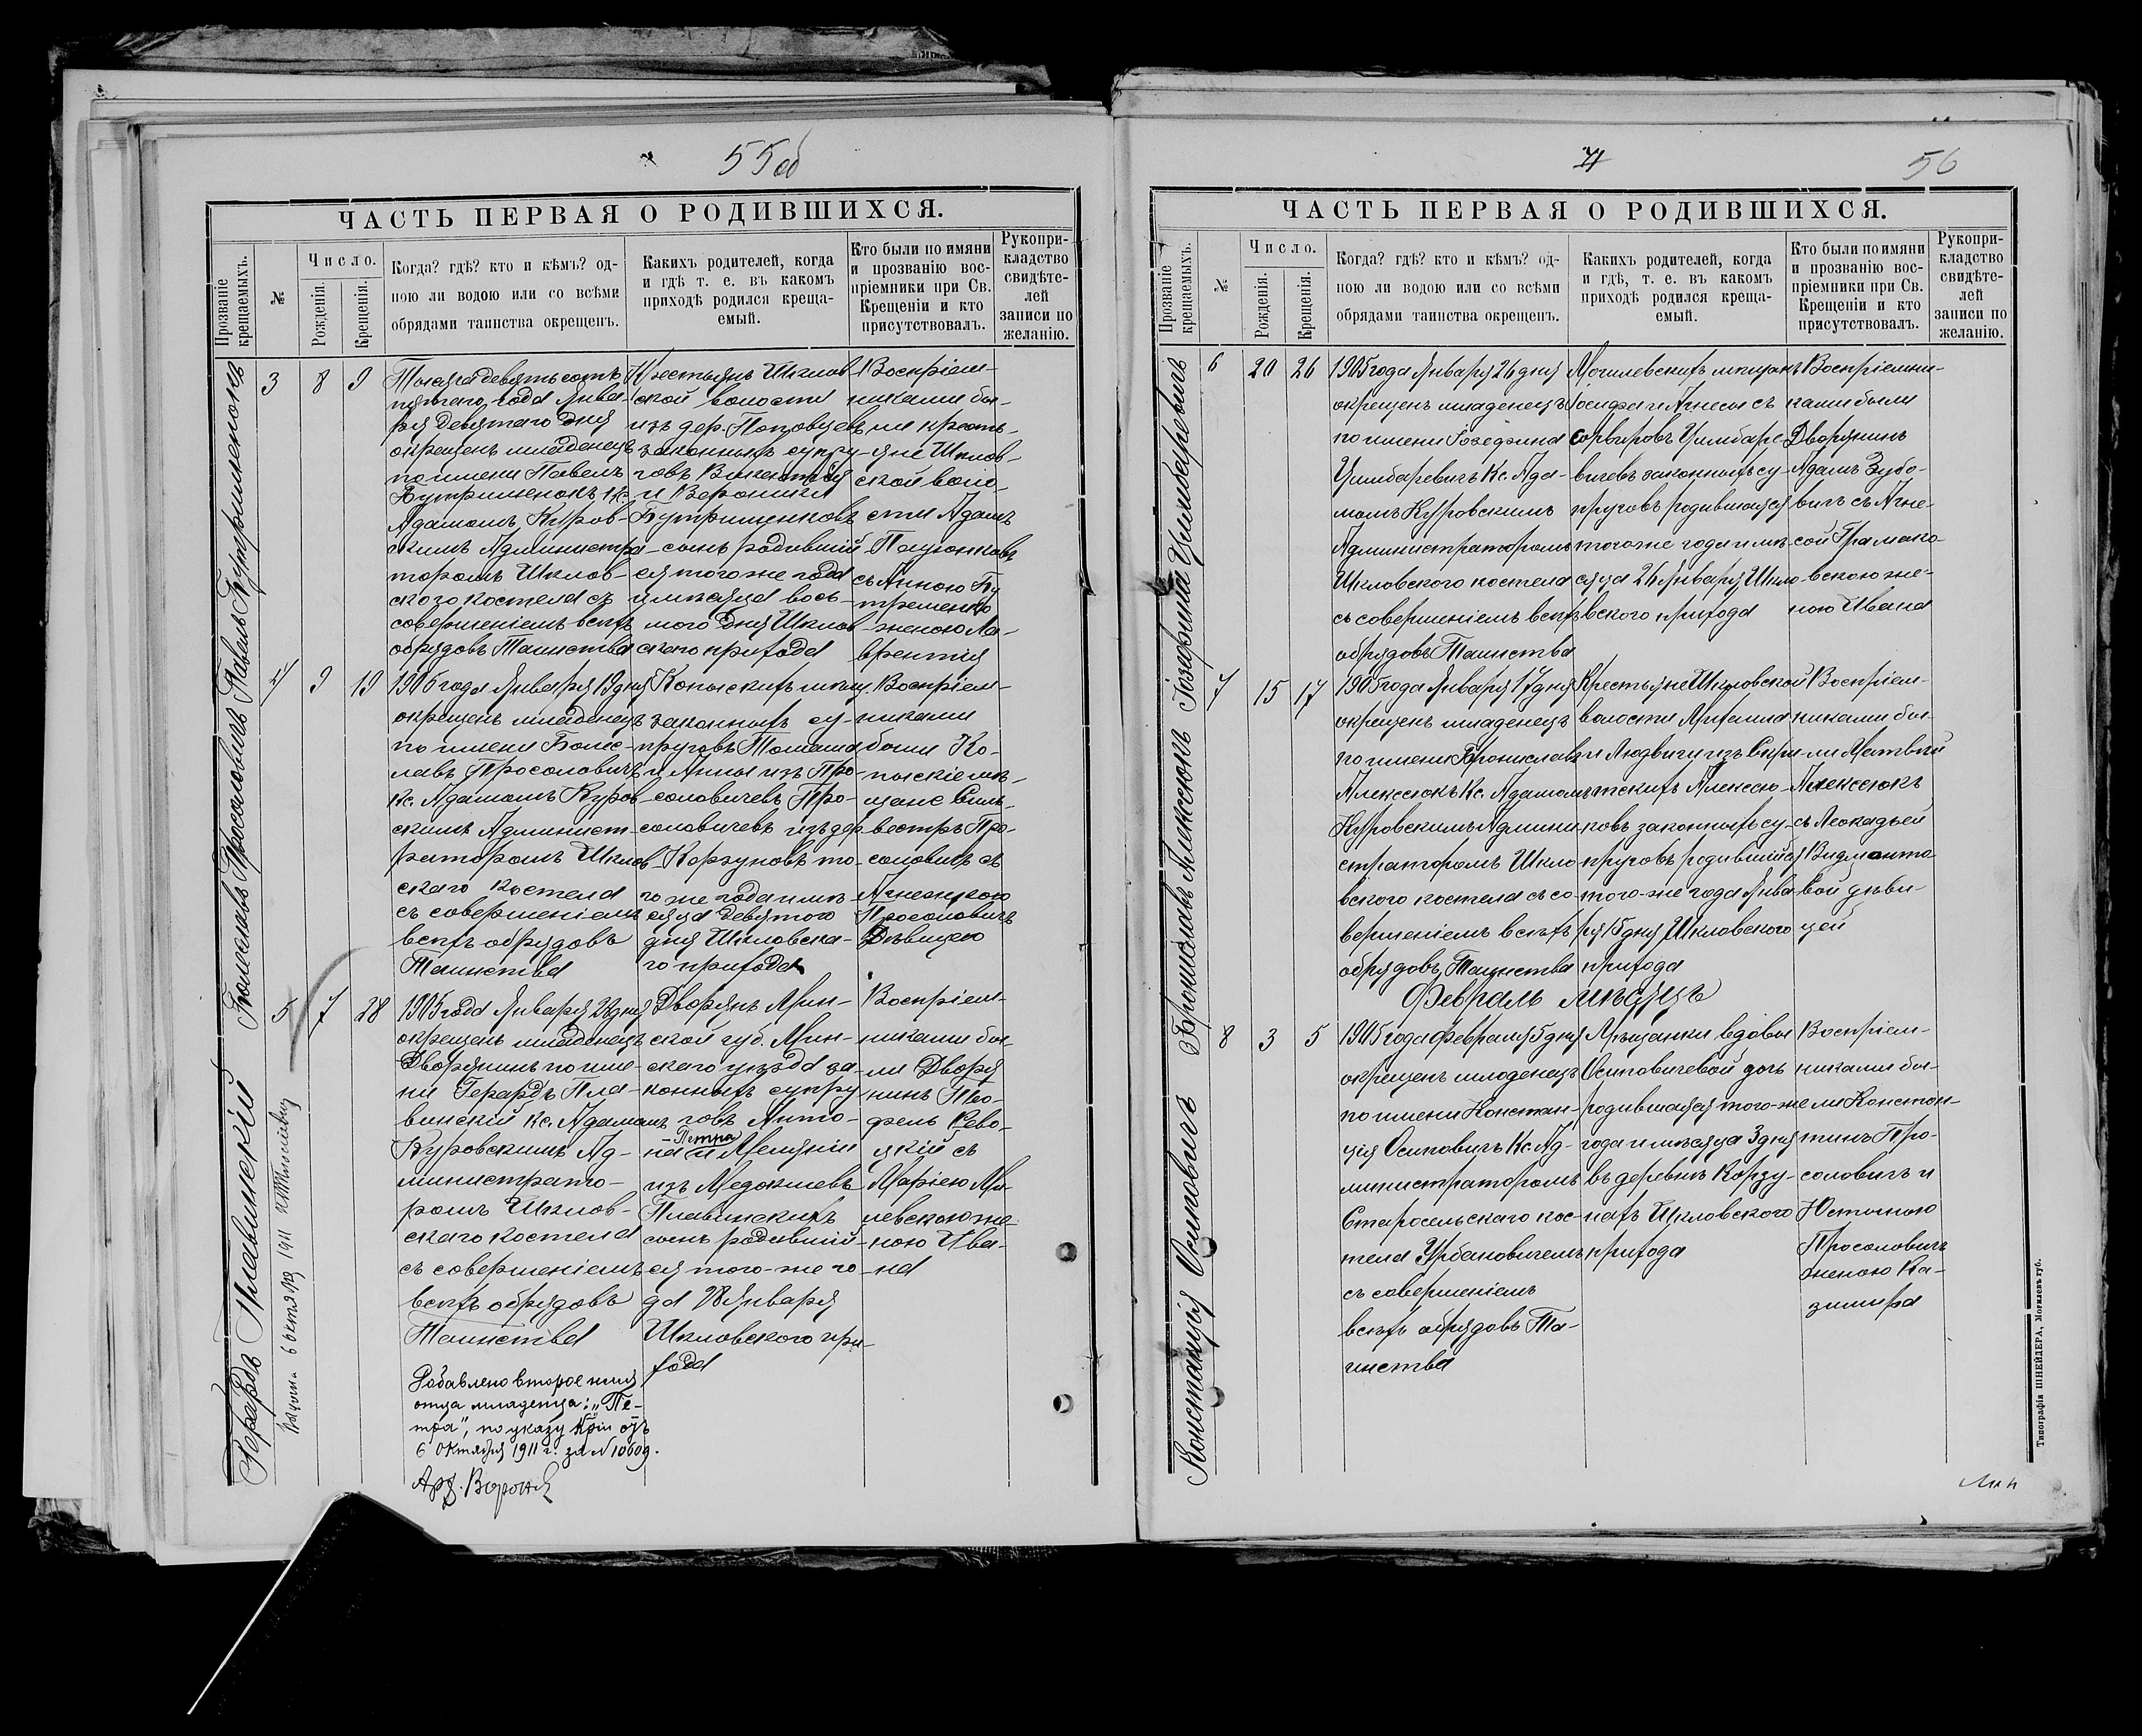 55об
ЧАСТЬ ПЕРВАЯ О РОДИВШИХСЯ.
Прозваніе крещаемыхъ.
№
Число.
Рожденія.
Крещенія.
Когда? гдѣ? кто и кѣмъ? од-
ною ли водою или со всѣми
обрядами таинства окрещенъ.
Какихъ родителей, когда
и гдѣ т. е. въ какомъ
приходѣ родился креща-
емый.
Кто были по имяни
и прозванію вос-
пріемники при Св.
Крещеніи и кто
присутствовалъ.
Рукопри-
кладство
свидѣте-
лей
записи по
желанію.
Павелъ Бутрименокъ
3
8
9
Тысяча девятьсотъ
пятаго года Янва-
ря девятаго дня
окрещенъ младенецъ
по имени Павелъ
Бутрименокъ, Кс.
Адамомъ Куров-
скимъ Администра-
торомъ Шклов-
скаго костела съ
совершеніемъ всѣхъ
обрядовъ Таинства
Крестьянъ Шклов-
ской волости
изъ дер.
законныхъ супру-
говъ Викентія
и Вероники
Бутрименковъ
сынъ родившій-
ся того же года
и мѣсяца вось-
мого дня Шклов-
скаго прихода
Воспріем-
никами бы-
ли кресть-
яне Шклов-
ской воло-
сти Адамъ
съ Анною Бу-
трименко
женою Ла-
врентія
Болеславъ Просоловичъ
4
9
19
1905 года Января 19 дня
окрещенъ младенецъ
по имени Болес-
лавъ Просоловичъ
Кс. Адамомъ Куров-
скимъ Админист-
раторомъ Шклов-
скаго костела
съ совершеніемъ
всѣхъ обрядовъ
Таинства
Копыскихъ мѣщ.
законныхъ су-
пруговъ Томаша
и Анны изъ Про-
соловичевъ Про-
соловичевъ изъ дер.
Корзуновъ то-
го же года и мѣ-
сяца девятого
дня Шкловска-
го прихода
Воспріем-
никами
были Ко-
пыскіе мѣ-
щане Силь-
вестръ Про-
соловичъ съ
Агнешкою
Просоловичъ
Дѣвицею
Герардъ Плавинскій
5
7
28
1905 года Января 28 дня
окрещенъ младенецъ
Дворянинъ по име-
ни Герардъ Пла-
винскій Кс. Адамомъ
Куровскимъ Ад-
министрато-
ромъ Шклов-
скаго костела
съ совершеніемъ
всѣхъ обрядовъ
Таинства
Дворянъ Мин-
ской губ. Мин-
скаго уѣзда за-
конныхъ супру-
говъ Анто-
-Петра
на и Меляніи
изъ
Плавинскихъ
сынъ родившій-
ся того-же го-
да Января
Шкловского при-
хода
Воспріем-
никами бы-
ли Дворя-
нинъ Тео-
филь
съ
Маріею
же-
ною Ива-
на
Добавлено второе имя
отца младенца: "Пе-
тра", по указу Кріи отъ
6 Октября 1911 г. за № 10609.
56
ЧАСТЬ ПЕРВАЯ О РОДИВШИХСЯ.
Прозваніе крещаемыхъ.
№
Число.
Рожденія.
Крещенія.
Когда? гдѣ? кто и кѣмъ? од-
ною ли водою или со всѣми
обрядами таинства окрещенъ.
Какихъ родителей, когда
и гдѣ, т. е. въ какомъ
приходѣ родился креща-
емый.
Кто были по имяни
и прозванію вос-
пріемники при Св.
Крещеніи и кто
присутствовалъ.
Рукопри-
кладство
свидѣте-
лей
записи по
желанію.
Іозефина Цимбаревичъ
6
20
26
1905 года Января 26 дня
окрещенъ младенецъ
по имени Іозефина
Цимбаревичъ Кс. Ада-
момъ Куровскимъ
Администраторомъ
Шкловского костела
съ совершеніемъ всѣхъ
обрядовъ Таинства
Могилевскихъ мѣщанъ
Іосифа и Агнесы съ
Цимбаре-
вичевъ законныхъ су-
пруговъ родившаяся
того же года и мѣ-
сяца Января Шкло-
вского прихода
Воспріемни-
ками были
Дворянинъ
Адамъ Зубо-
вичъ съ Агне-
сой Грамако-
вскою же-
ною Ивана
Брониславъ Алексюкъ
7
15
17
1905 года Января 17 дня
окрещенъ младенецъ
по имени Брониславъ
Алексюкъ Кс. Адамомъ
Куровскимъ Админи-
страторомъ Шкло-
вского костела съ со-
вершеніемъ всѣхъ
обрядовъ, Таинства
Крестьяне Шкловской
волости Михаила
и Людвиги изъ
Алексю-
ковъ законныхъ су-
пруговъ родившійся
того-же года Янва-
ря 15 дня Шкловского
прихода
Воспріем-
никами бы-
ли Матвѣй
Алексюкъ
съ Леокадьей
Видманто-
вой дѣви-
цей
Февраль мѣсяцъ
Констанція Осиповичъ
8
3
5
1905 года Февраля 5 дня
окрещенъ младенецъ
по имени Констан-
ція Осиповичъ Кс. Ад-
министраторомъ
Старосельскаго кос-
тела Урбановичемъ
съ совершеніемъ
всѣхъ обрядовъ Та-
инства
Мѣщанки вдовы
Осиповичевой дочь
родившаяся того-же
года и мѣсяца 3 дня
въ деревнѣ Корзу-
нахъ Шкловского
прихода
Воспріем-
никами бы-
ли Констан-
тинъ Про-
соловичъ и
Юстиною
Просоловичъ
женою Ка-
зимира
Типографія ШНЕЙДЕРА, Могилевъ губ.